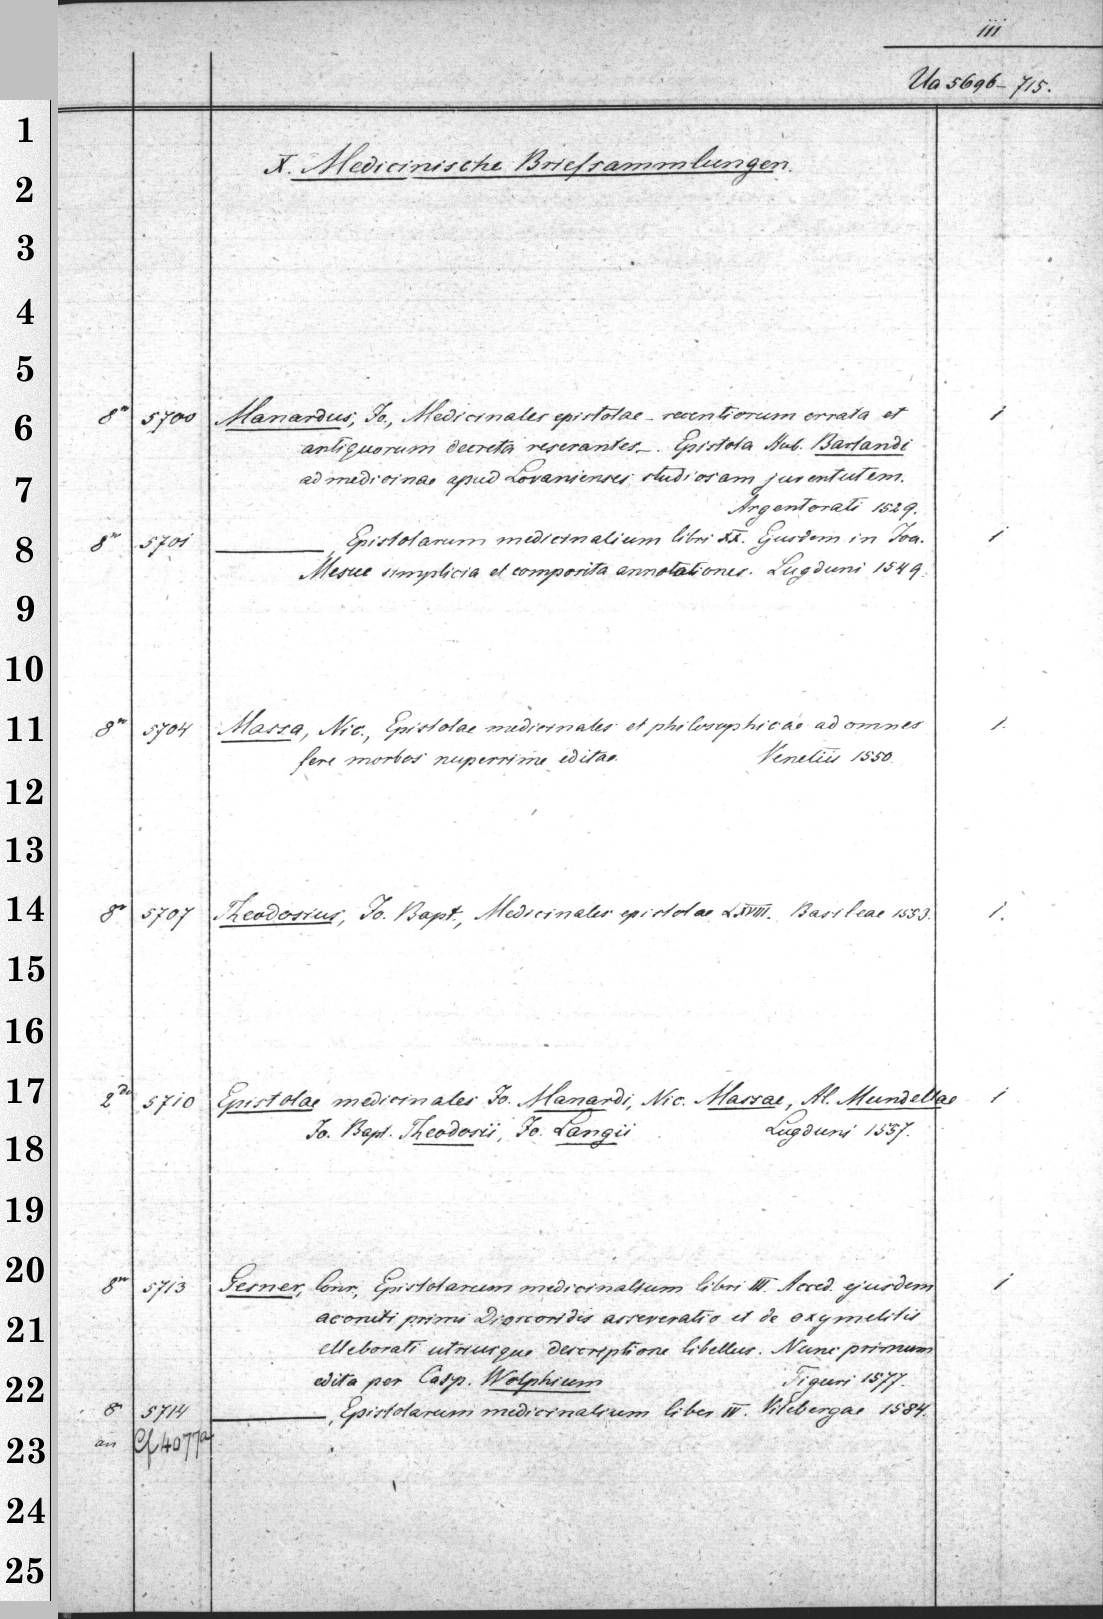 iii
Ua 5696-715.
X. Medicinische Briefsammlungen.
8° 5700 Manardus, Jo., Medicinales epistolae - recentiorum errata et 1
antiquorum decreta reserantes -. Epistola Hub. Barlandi
ad medicinae apud Lovanienses studiosam juventutem.
Argentorati 1529.
8° 5701 ———, Epistolarum medicinalium libri XX. Ejusdem in Joa. 1
Mesue simplicia et composita annotationes. Lugduni 1549.
8° 5704 Massa, Nic., Epistolae medicinales et philosophicae ad omnes 1.
fere morbos nuperrime editae. Venetiis 1550.
8° 5707 Theodosius, Jo. Bapt., Medicinales epistolae LXVIII. Basileae 1553. 1.
2° 5710 Epistolae medicinales Jo. Manardi, Nic. Massae, Al. Mundellae 1
Jo. Bapt. Theodosii, Jo. Langii Lugduni 1557.
8° 5713 Gesner, Conr., Epistolarum medicinalium libri III. Acced. ejusdem 1
aconiti primi Dioscoridis asseveratio et de oxymelitis
elleborati utriusque descriptione libellus. Nunc primum
edita per Casp. Wolphium Tiguri 1577.
8° 5714 ———, Epistolarum medicinalium liber IV. Vitebergae 1584.
an Cf 4077a
1
2
3
4
5
6
7
8
9
10
11
12
13
14
15
16
17
18
19
20
21
22
23
24
25